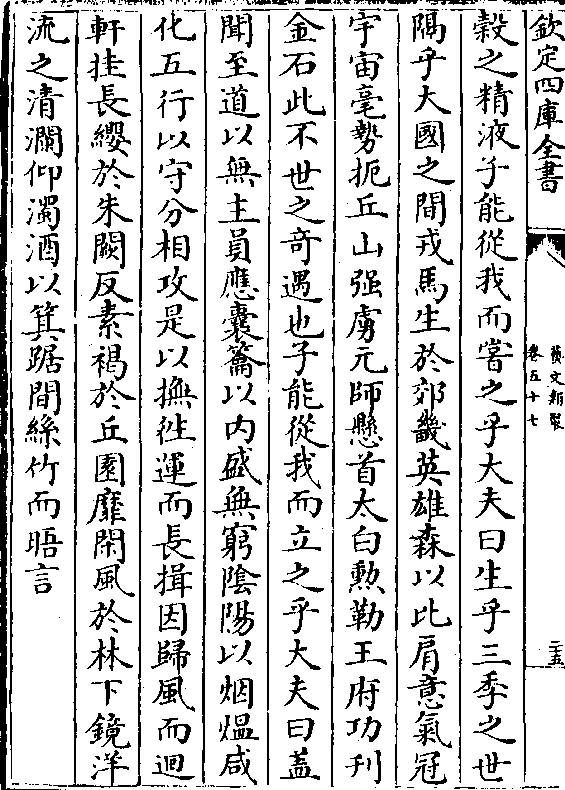 欽定四庫全書
藝文類聚
卷五十七
二五
榖之精液子能從我而甞之乎大夫曰生乎三季之世
隔乎大國之間戎馬生於郊畿英雄森以比肩意氣冠
宇宙毫勢扼丘山强虜元師懸首太白勲勒王府功刋
金石此不世之奇遇也子能從我而立之乎大夫曰盖
聞至道以無主員應橐籥以内盛無窮隂陽以烟煴咸
化五行以守分相攻是以撫徃運而長揖因歸風而迴
軒挂長纓於朱闕反素褐於丘園靡閑風於林下鏡洋
流之清瀾仰濁酒以箕踞間絲竹而晤言